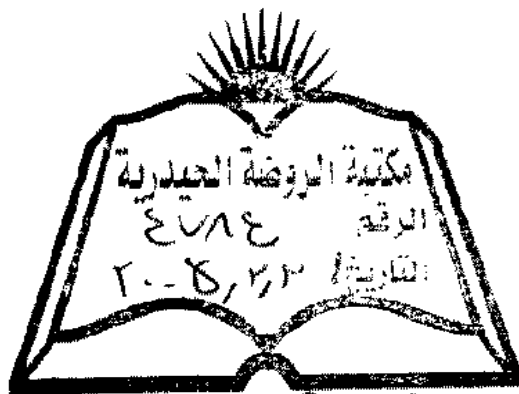 مكتبة الروضة الحيدرية
الرقم ٤٧٨٤
التاريخ /